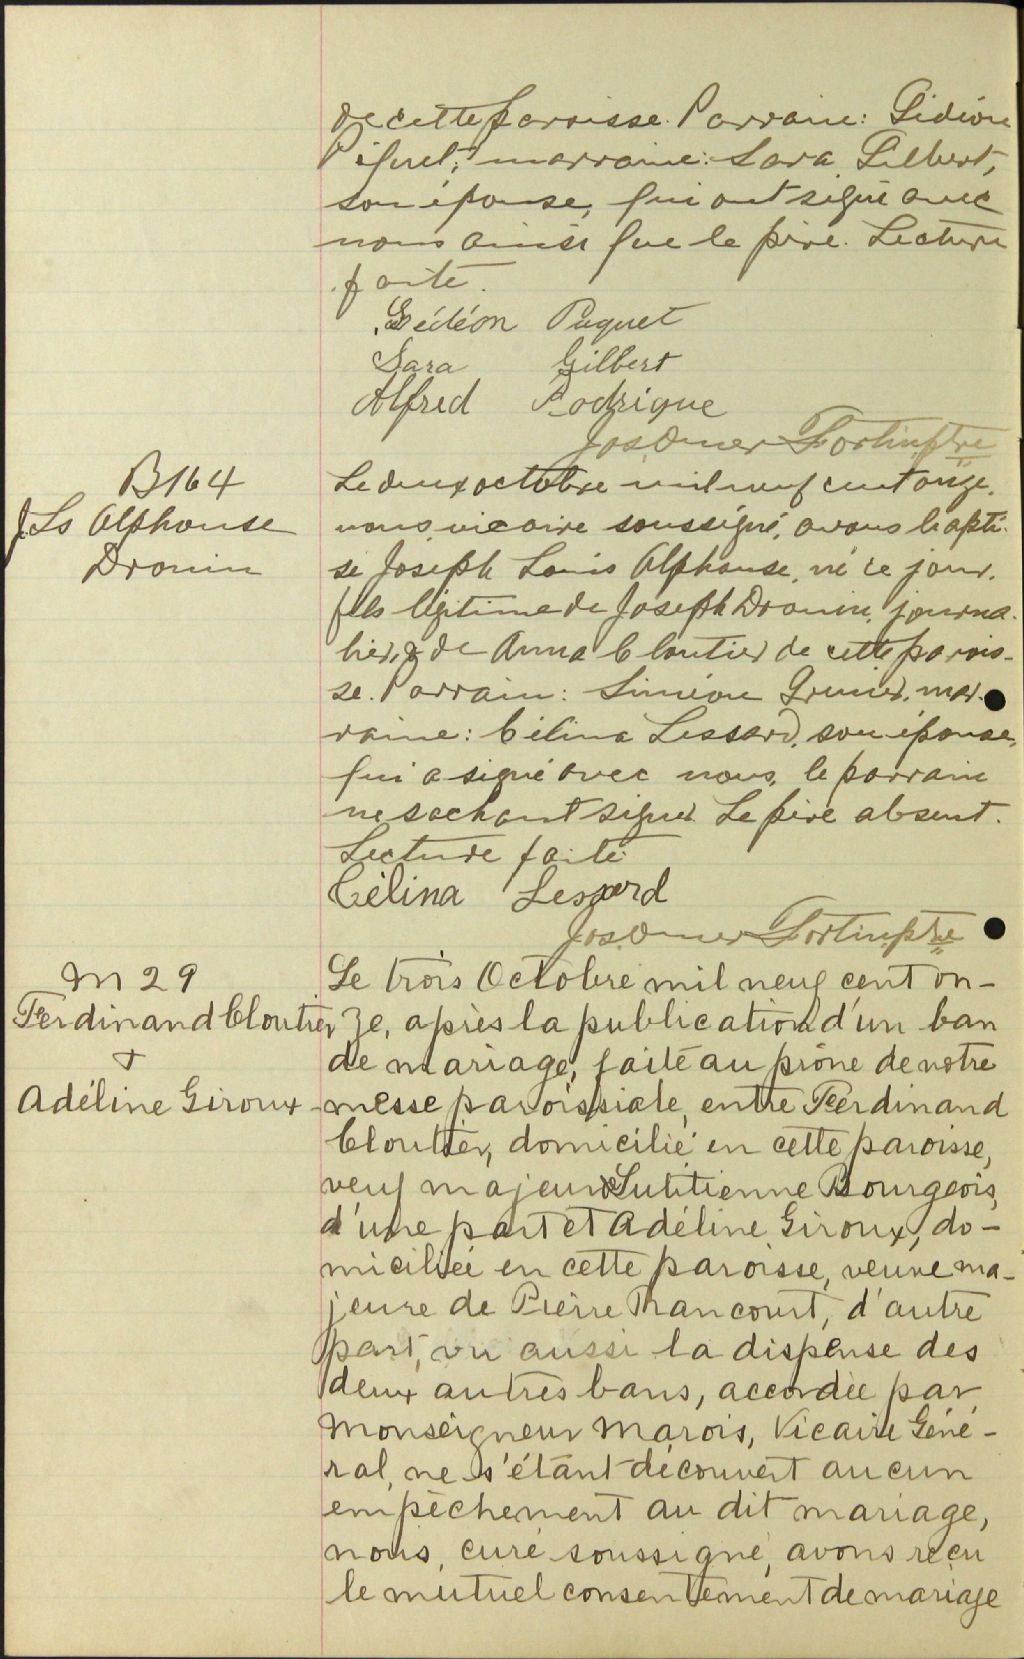 de cette paroisse. Parrain: Gédéon
Paquet; marraine: Sara Gilbert,
son épouse, qui ont signé avec
nous ainsi que le père. Lecture
faite.
Gédéon Paquet
Sara Gilbert
Alfred Rodrigue
Jos. Omer Fortin, ptre
B 164
J. Ls Alphonse
Drouin
Le deux octobre mil neuf cent onze,
nous, vicaire soussigné, avons bapti-
sé Joseph Louis Alphonse, né ce jour,
fils légitime de Joseph Drouin, journa-
lier, & de Anna Cloutier de cette parois-
se. Parrain: Siméon Grenier, mar-
raine: Célina Lessard, son épouse,
qui a signé avec nous, le parrain
ne sachant signer. Le père absent.
Lecture faite.
Célina Lessard
Jos. Omer Fortin, ptre
M 29
Ferdinand Cloutier
&
Adéline Giroux
Le trois Octobre mil neuf cent on-
ze, après la publication d'un ban
de mariage, faite au prône de notre
messe paroissiale, entre Ferdinand
Cloutier, domicilié en cette paroisse,
veuf majeur de Bourgeois,
d'une part et Adéline Giroux, do-
miciliée en cette paroisse, veuve ma-
jeure de Pierre Rancourt, d'autre
part, vu aussi la dispense des
deux autres bans, accordée par
Monseigneur Marois, Vicaire Géné-
ral, ne s'étant découvert aucun
empêchement au dit mariage,
nous, curé soussigné, avons reçu
le mutuel consentement de mariage